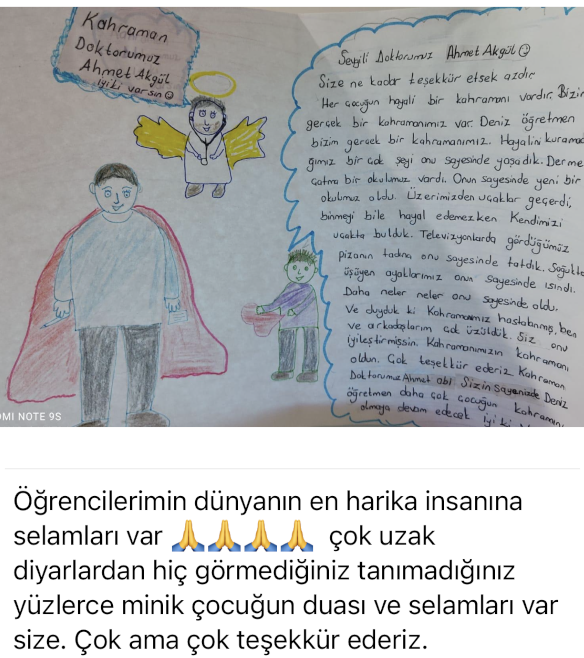 Kahraman
Doktorumuz
Ahmet Akgül
iyiki varsın
Sevgili Doktorumuz Ahmet Akgül
Size ne kadar teşekkür etsek azdır
Her çocuğun hayali bir kahramanı vardır. Bizim
gerçek bir kahramanımız var. Deniz öğretmen
bizim gerçek bir kahramanımız. Hayalini kurama
ğımız bir çok şeyi onu sayesinde yaşadık. Derme
Çatma bir okulumuz vardı. Onun sayesinde yeni bir
okulumuz oldu. Üzerimizden uçaklar geçerdi,
binmeyi bile hayal edemezken Kendimizi
uçakta bulduk. Televizyonlarda gördüğümüz
pizanın tadına onu sayesinde tatdık. Soğukta
üşüyen ayaklarımız onun sayesinde ısındı.
Daha neler neler onu sayesinde oldu.
Ve duyduk ki Kahramanımız hastalanmış, ben
ve arkadaşlarım çok üzüldük. Siz onu
iyileştirmişsin. Kahramanımızın kahramanı
oldun. Çok teşekkür ederiz Kahraman
Doktorumuz Ahmet abi Sizin sayenizde Deniz
öğretmen daha çok çocuğun kahramanı
olmaya devam edecek iyi ki
OMI NOTE 9S
Öğrencilerimin dünyanın en harika insanına
selamları var 🙏🙏🙏🙏 çok uzak
diyarlardan hiç görmediğiniz tanımadığınız
yüzlerce minik çocuğun duası ve selamları var
size. Çok ama çok teşekkür ederiz.